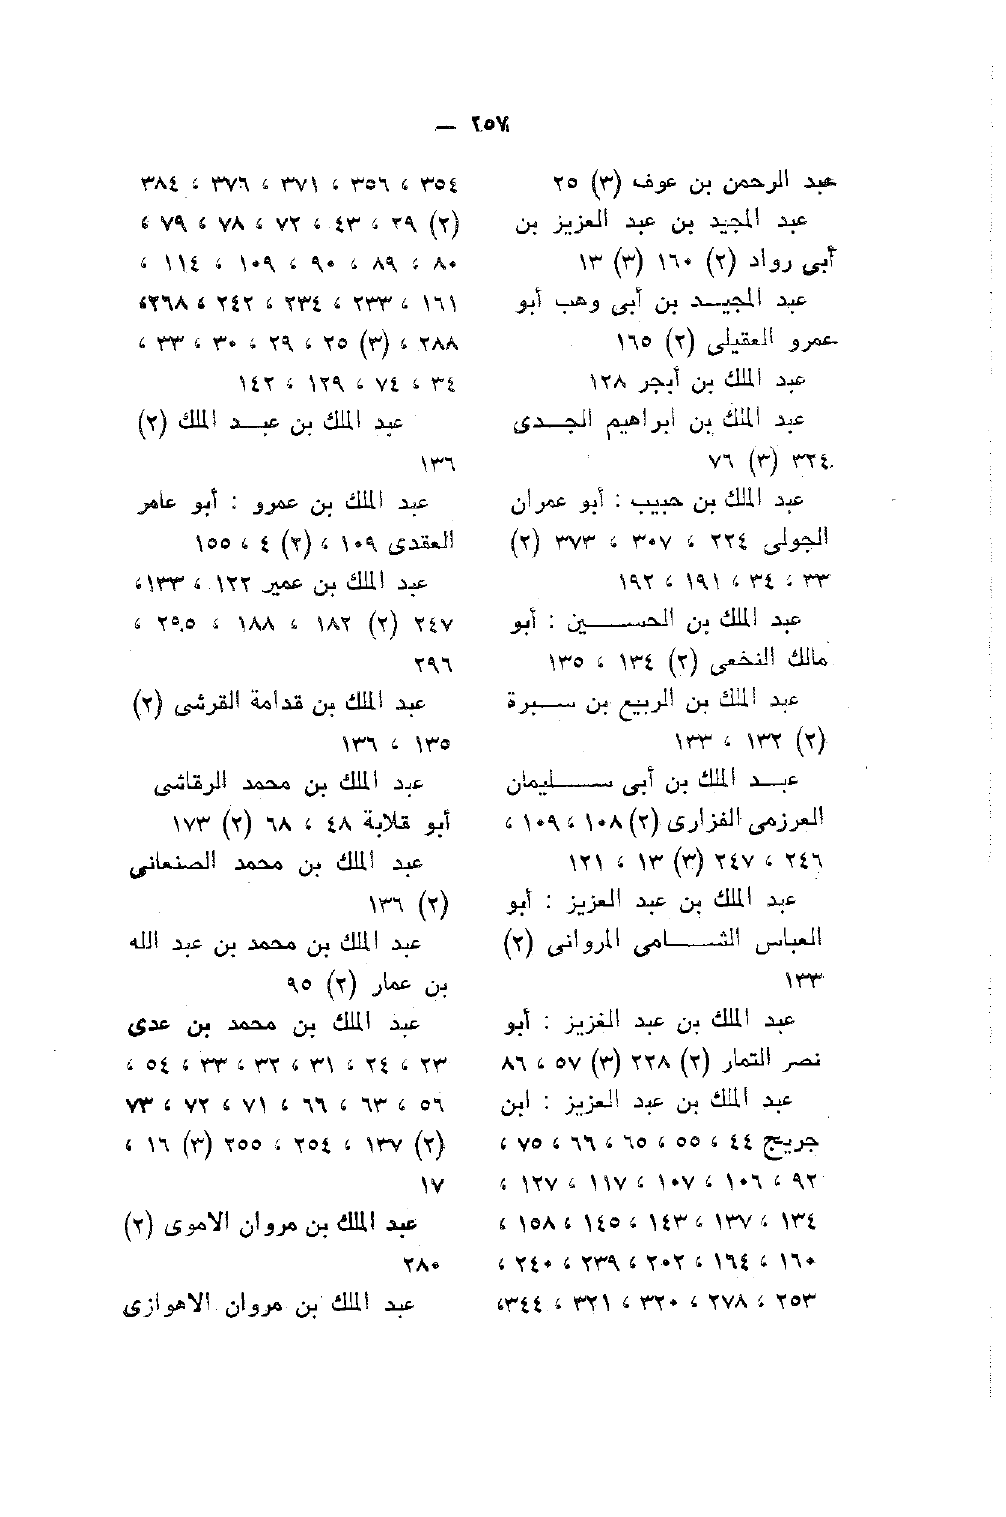 ٢٥٧ —
عبد الرحمن بن عوف (٣) ٢٥
عبد المجيد بن عبد العزيز بن
أبى رواد (٢) ١٦٠ (٣) ١٣
عبد المجيـــد بن أبى وهب أبو
عمرو العقيلى (٢) ١٦٥
عبد الملك بن أبجر ١٢٨
عبد الملك بن ابراهيم الجـــدى
٣٢٤ (٣) ٧٦
عبد الملك بن حبيب : أبو عمران
الجولى ٢٢٤ ، ٣٠٧ ، ٣٧٣ (٢)
٣٣ ، ٣٤ ، ١٩١ ، ١٩٢
عبد الملك بن الحســـــين : أبو
مالك النخعى (٢) ١٣٤ ، ١٣٥
عبد الملك بن الربيع بن ســـبرة
(٢) ١٣٢ ، ١٣٣
عبـــد الملك بن أبى ســـــليمان
العرزمى الفزارى (٢) ١٠٨ ، ١٠٩ ،
٢٤٦ ، ٢٤٧ (٣) ١٣ ، ١٢١
عبد الملك بن عبد العزيز : أبو
العباس الشـــــامى المروانى (٢)
١٣٣
عبد الملك بن عبد الغزيز : أبو
نصر التمار (٢) ٢٢٨ (٣) ٥٧ ، ٨٦
عبد الملك بن عبد العزيز : ابن
جريج ٤٤ ، ٥٥ ، ٦٥ ، ٦٦ ، ٧٥ ،
٩٢ ، ١٠٦ ، ١٠٧ ، ١١٧ ، ١٢٧ ،
١٣٤ ، ١٣٧ ، ١٤٣ ، ١٤٥ ، ١٥٨ ،
١٦٠ ، ١٦٤ ، ٢٠٢ ، ٢٣٩ ، ٢٤٠ ،
٢٥٣ ، ٢٧٨ ، ٣٢٠ ، ٣٢١ ، ٣٤٤،
٣٥٤ ، ٣٥٦ ، ٣٧١ ، ٣٧٦ ، ٣٨٤
(٢) ٢٩ ، ٤٣ ، ٧٢ ، ٧٨ ، ٧٩ ،
٨٠ ، ٨٩ ، ٩٠ ، ١٠٩ ، ١١٤ ،
١٦١ ، ٢٣٣ ، ٢٣٤ ، ٢٤٢ ، ٢٦٨،
٢٨٨ ، (٣) ٢٥ ، ٢٩ ، ٣٠ ، ٣٣ ،
٣٤ ، ٧٤ ، ١٢٩ ، ١٤٢
عبد الملك بن عبـــد الملك (٢)
١٣٦
عبد الملك بن عمرو : أبو عامر
العقدى ١٠٩ ، (٢) ٤ ، ١٥٥
عبد الملك بن عمير ١٢٢ ، ١٣٣،
٢٤٧ (٢) ١٨٢ ، ١٨٨ ، ٢٩٥ ،
٢٩٦
عبد الملك بن قدامة القرشى (٢)
١٣٥ ، ١٣٦
عبد الملك بن محمد الرقاشى
أبو قلابة ٤٨ ، ٦٨ (٢) ١٧٣
عبد الملك بن محمد الصنعانى
(٢) ١٣٦
عبد الملك بن محمد بن عبد الله
بن عمار (٢) ٩٥
عبد الملك بن محمد بن عدى
٢٣ ، ٢٤ ، ٣١ ، ٣٢ ، ٣٣ ، ٥٤ ،
٥٦ ، ٦٣ ، ٦٦ ، ٧١ ، ٧٢ ، ٧٣
(٢) ١٣٧ ، ٢٥٤ ، ٢٥٥ (٣) ١٦ ،
١٧
عبد الملك بن مروان الاموى (٢)
٢٨٠
عبد الملك بن مروان الاهوازى